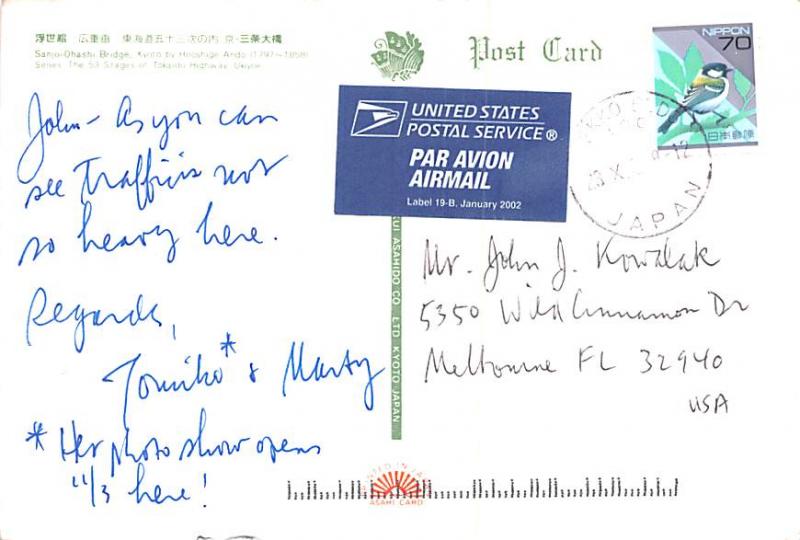 浮世絵 広重画 東海道五十三次の内 京・三条大橋
Sanjo-Ohashi Bridge, Kyoto by Hiroshige Ando (1797~1858)
Series: The 53 Stages of Tokaido Highway, Ukiyoe
Post Card
NIPPON
70
日本郵便
UNITED STATES
POSTAL SERVICE®
PAR AVION
AIRMAIL
Label 19-B, January 2002
JAPAN
John - As you can
see traffic is not
so heavy here.
Regards,
Tomiko* & Marty
* Her photo show opens
11/3 here!
Mr. John J. Kowalak
5350 Wild Cinnamon Dr
Melbourne FL 32940
USA
ASAHIDO CO. LTD KYOTO JAPAN
PRINTED IN JAPAN
ASAHI CARD